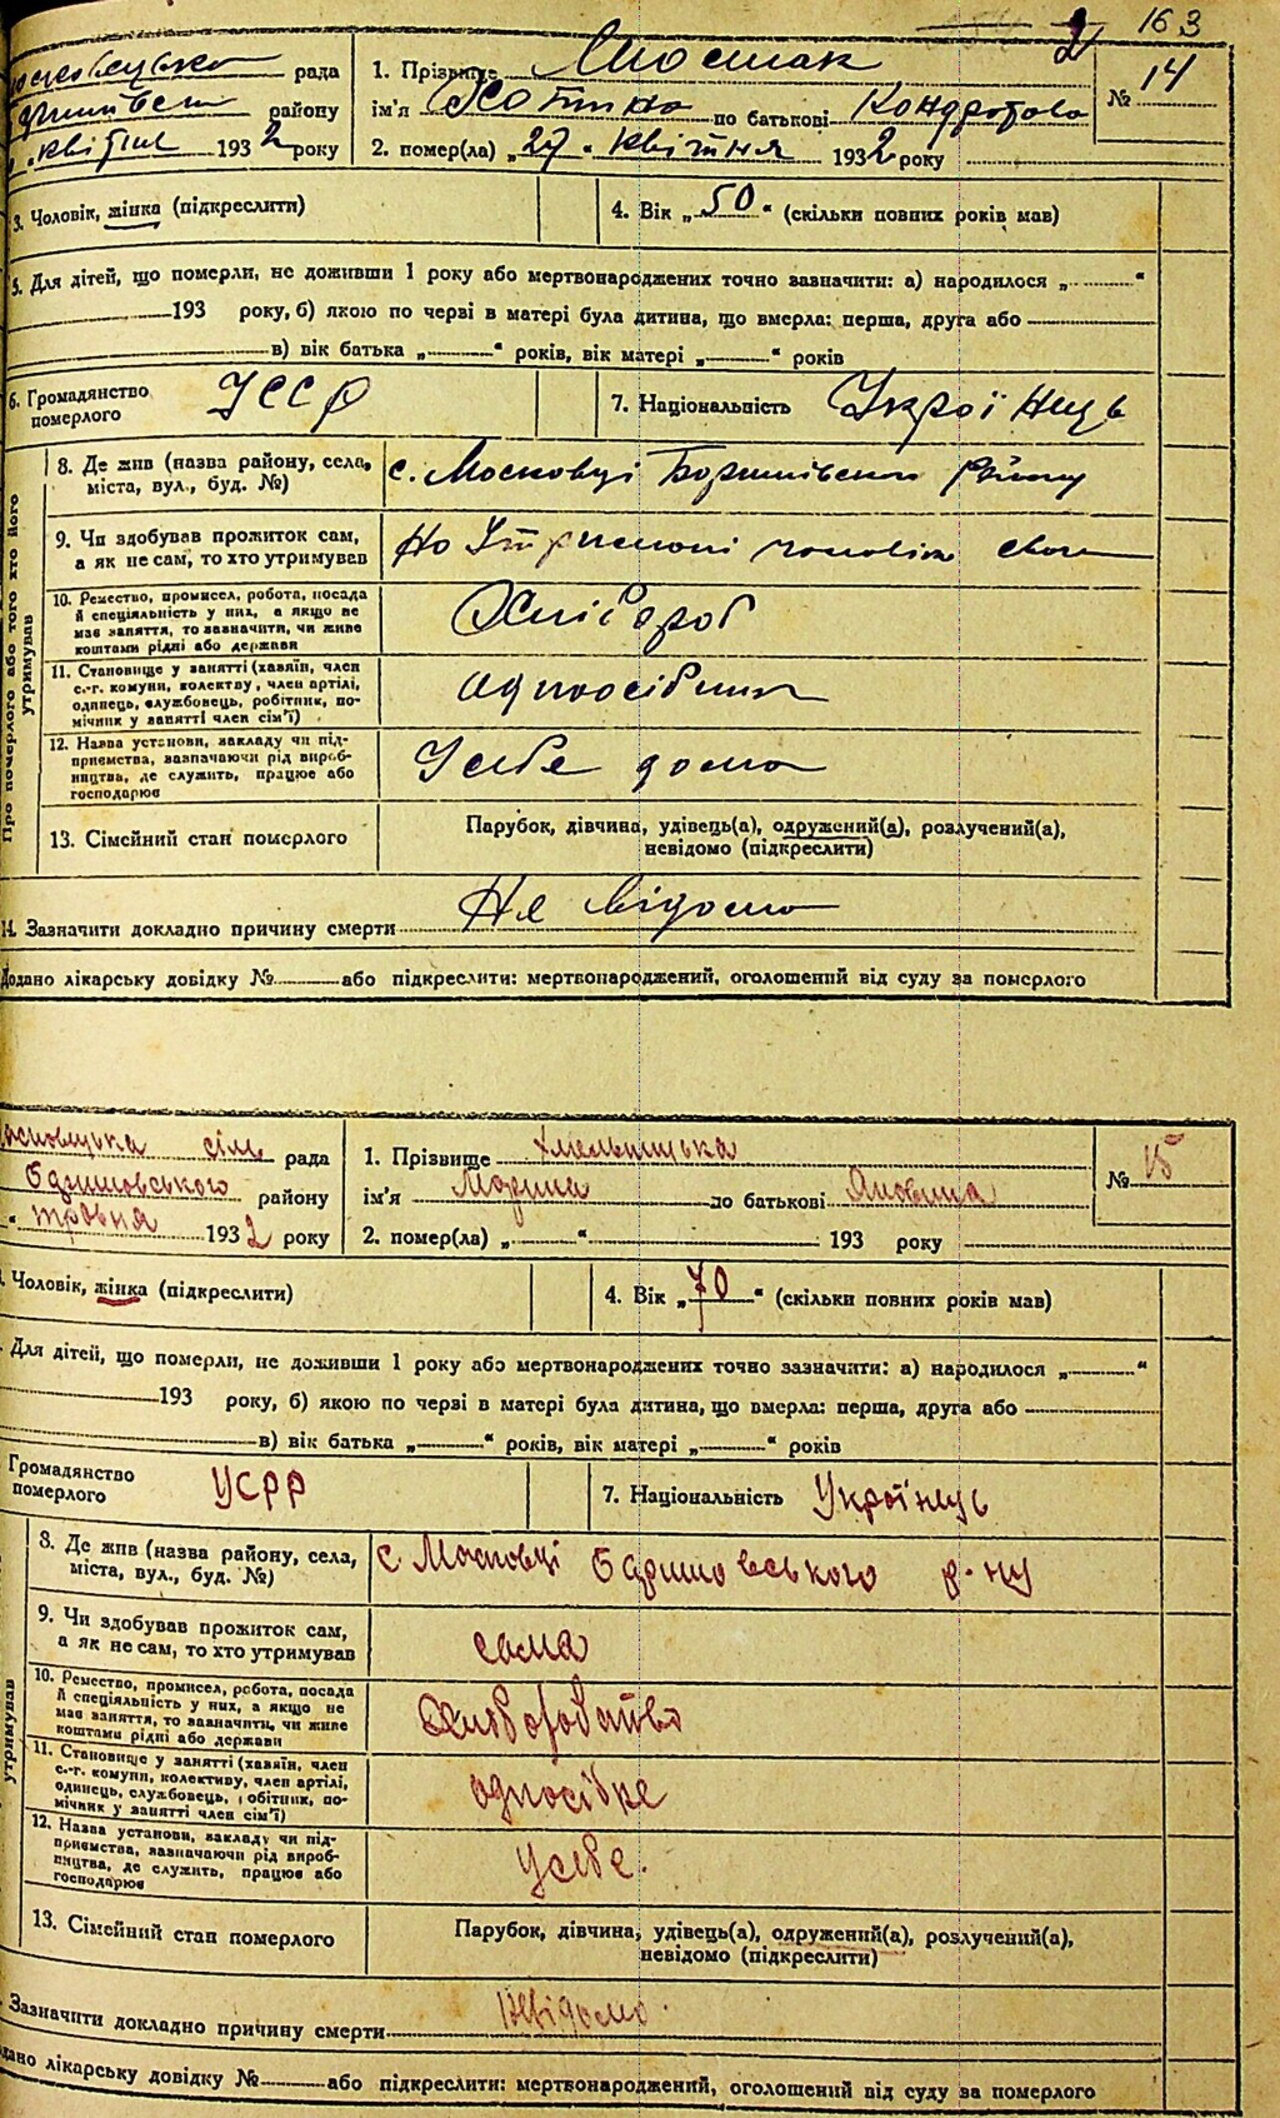 2 163
рада 1. Прізвище
району ім'я по батькові Кондратова № 14
квітня 1932 року 2. помер(ла) „27“ квітня 1932 року
3. Чоловік, жінка (підкреслити) 4. Вік „50“ (скільки повних років мав)
5. Для дітей, що померли, не доживши 1 року або мертвонароджених точно зазначити: а) народилося „ “
193 року, б) якою по черві в матері була дитина, що вмерла: перша, друга або
в) вік батька „ “ років, вік матері „ “ років
6. Громадянство померлого УССР 7. Національність Українець
8. Де жив (назва району, села, с. Московці Баришівськ району
міста, вул., буд. №)
9. Чи здобував прожиток сам, На Утриманні чоловік свого
а як не сам, то хто утримував
10. Ремество, промисел, робота, посада Хлібороб
й спеціяльність у них, а якщо не
має заняття, то зазначити, чи живе
коштами рідні або держави
11. Становище у занятті (хазяїн, член одноосібник
с.-г. комуни, колектву, член артілі,
одинець, службовець, робітник, по-
мічник у занятті член сім'ї)
12. Назва установи, закладу чи під- У себе дома
приємства, зазначаючи рід вироб-
ництва, де служить, працює або
господарює
Про померлого або того хто його утримував
13. Сімейний стан померлого Парубок, дівчина, удівець(а), одружений(а), розлучений(а),
невідомо (підкреслити)
14. Зазначити докладно причину смерти Не відомо
Додано лікарську довідку № або підкреслити: мертвонароджений, оголошений від суду за померлого
сіль рада 1. Прізвище Хмельницька
району ім'я Марина по батькові № 15
„ “ травня 1932 року 2. помер(ла) „ “ 193 року
Чоловік, жінка (підкреслити) 4. Вік „70“ (скільки повних років мав)
Для дітей, що померли, не доживши 1 року або мертвонароджених точно зазначити: а) народилося „ “
193 року, б) якою по черзі в матері була дитина, що вмерла: перша, друга або
в) вік батька „ “ років, вік матері „ “ років
Громадянство померлого УСРР 7. Національність Українець
8. Де жив (назва району, села, с Московці р-ну
міста, вул., буд. №)
9. Чи здобував прожиток сам, сама
а як не сам, то хто утримував
10. Ремество, промисел, робота, посада
й спеціяльність у них, а якщо не
має заняття, то зазначити, чи живе
коштами рідні або держави
11. Становище у занятті (хазяїн, член
с.-г. комуни, колективу, член артілі,
одинець, службовець, робітник, по-
мічник у занятті член сім'ї)
12. Назва установи, закладу чи під- У себе.
приємства, зазначаючи рід вироб-
ництва, де служить, працює або
господарює
утримував
13. Сімейний стан померлого Парубок, дівчина, удівець(а), одружений(а), розлучений(а),
невідомо (підкреслити)
Зазначити докладно причину смерти Невідомо.
лікарську довідку № або підкреслити: мертвонароджений, оголошений від суду за померлого